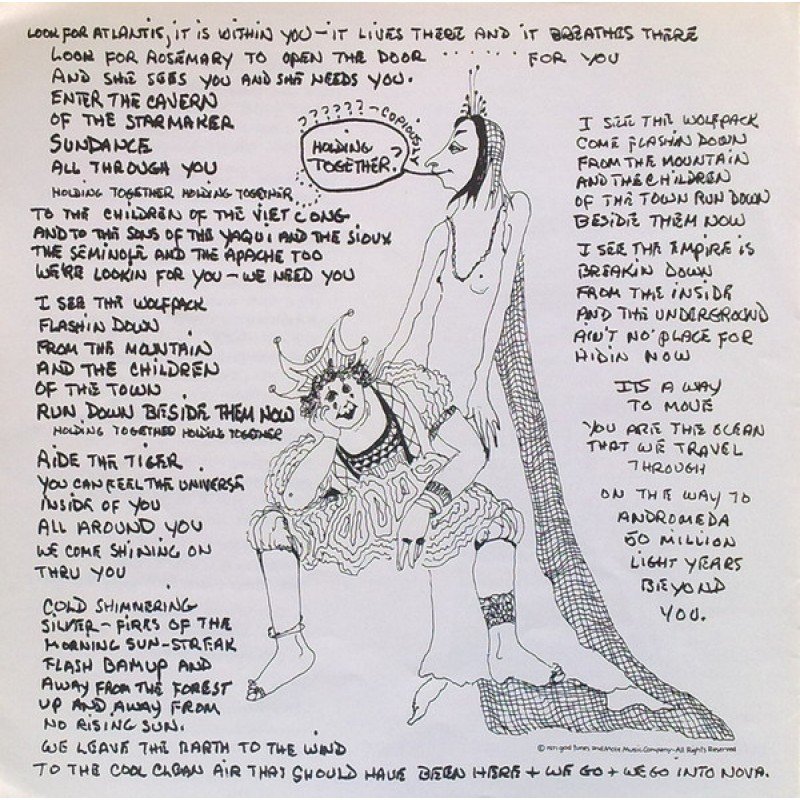 LOOK FOR ATLANTIS, IT IS WITHIN YOU - IT LIVES THERE AND IT BREATHES THERE
LOOK FOR ROSEMARY TO OPEN THE DOOR ...... FOR YOU
AND SHE SEES YOU AND SHE NEEDS YOU.
ENTER THE CAVERN
OF THE STARMAKER
SUNDANCE
ALL THROUGH YOU
HOLDING TOGETHER HOLDING TOGETHER
TO THE CHILDREN OF THE VIET CONG
AND TO THE SONS OF THE YAQUI AND THE SIOUX
THE SEMINOLE AND THE APACHE TOO
WE'RE LOOKIN FOR YOU - WE NEED YOU
I SEE THE WOLFPACK
FLASHIN DOWN
FROM THE MOUNTAIN
AND THE CHILDREN
OF THE TOWN
RUN DOWN BESIDE THEM NOW
HOLDING TOGETHER HOLDING TOGETHER
RIDE THE TIGER
YOU CAN FEEL THE UNIVERSE
INSIDE OF YOU
ALL AROUND YOU
WE COME SHINING ON
THRU YOU
COLD SHIMMERING
SILVER-FIRES OF THE
MORNING SUN-STREAK
FLASH BAMUP AND
AWAY FROM THE FOREST
UP AND AWAY FROM
NO RISING SUN.
WE LEAVE THE EARTH TO THE WIND
TO THE COOL CLEAN AIR THAT SHOULD HAVE BEEN HERE + WE GO + WE GO INTO NOVA.
??????-COPIOUSLY
HOLDING
TOGETHER?
I SEE THE WOLFPACK
COME FLASHIN DOWN
FROM THE MOUNTAIN
AND THE CHILDREN
OF THE TOWN RUN DOWN
BESIDE THEM NOW
I SEE THE EMPIRE IS
BREAKIN DOWN
FROM THE INSIDE
AND THE UNDERGROUND
AIN'T NO PLACE FOR
HIDIN NOW
ITS A WAY
TO MOVE
YOU ARE THE OCEAN
THAT WE TRAVEL
THROUGH
ON THE WAY TO
ANDROMEDA
50 MILLION
LIGHT YEARS
BEYOND
YOU.
© 1971 God Tunes and Mole Music Company - All Rights Reserved